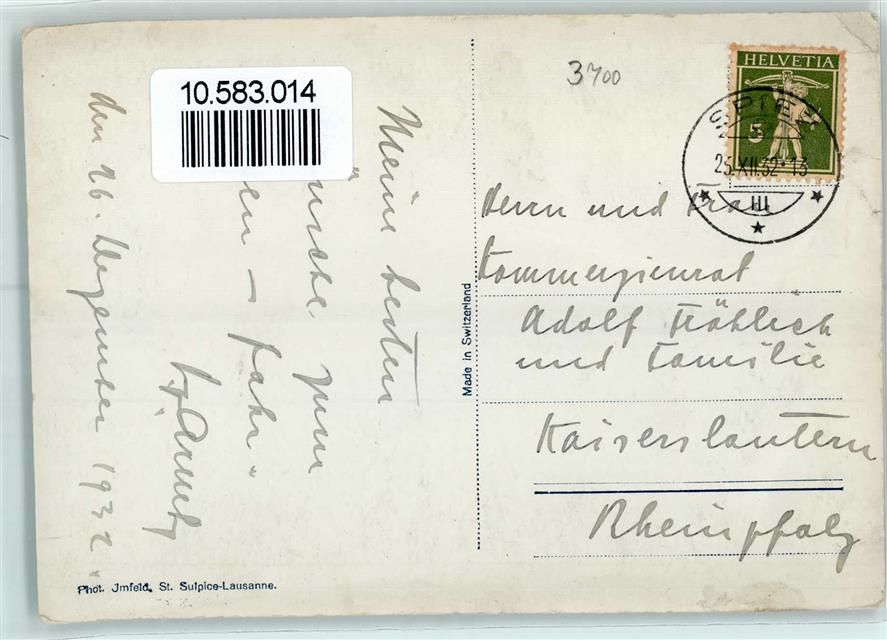 10.583.014
3700
HELVETIA
5
SPIEZ
25.XII.32-13
III
Meine besten
zum
fahr"
den 26. Dezember 1932
Herrn und Frau
Kommerzienrat
Adolf Fröhlich
und Familie
Kaiserslautern
Rheinpfalz
Made in Switzerland
Phot. Jmfeld, St. Sulpice-Lausanne.